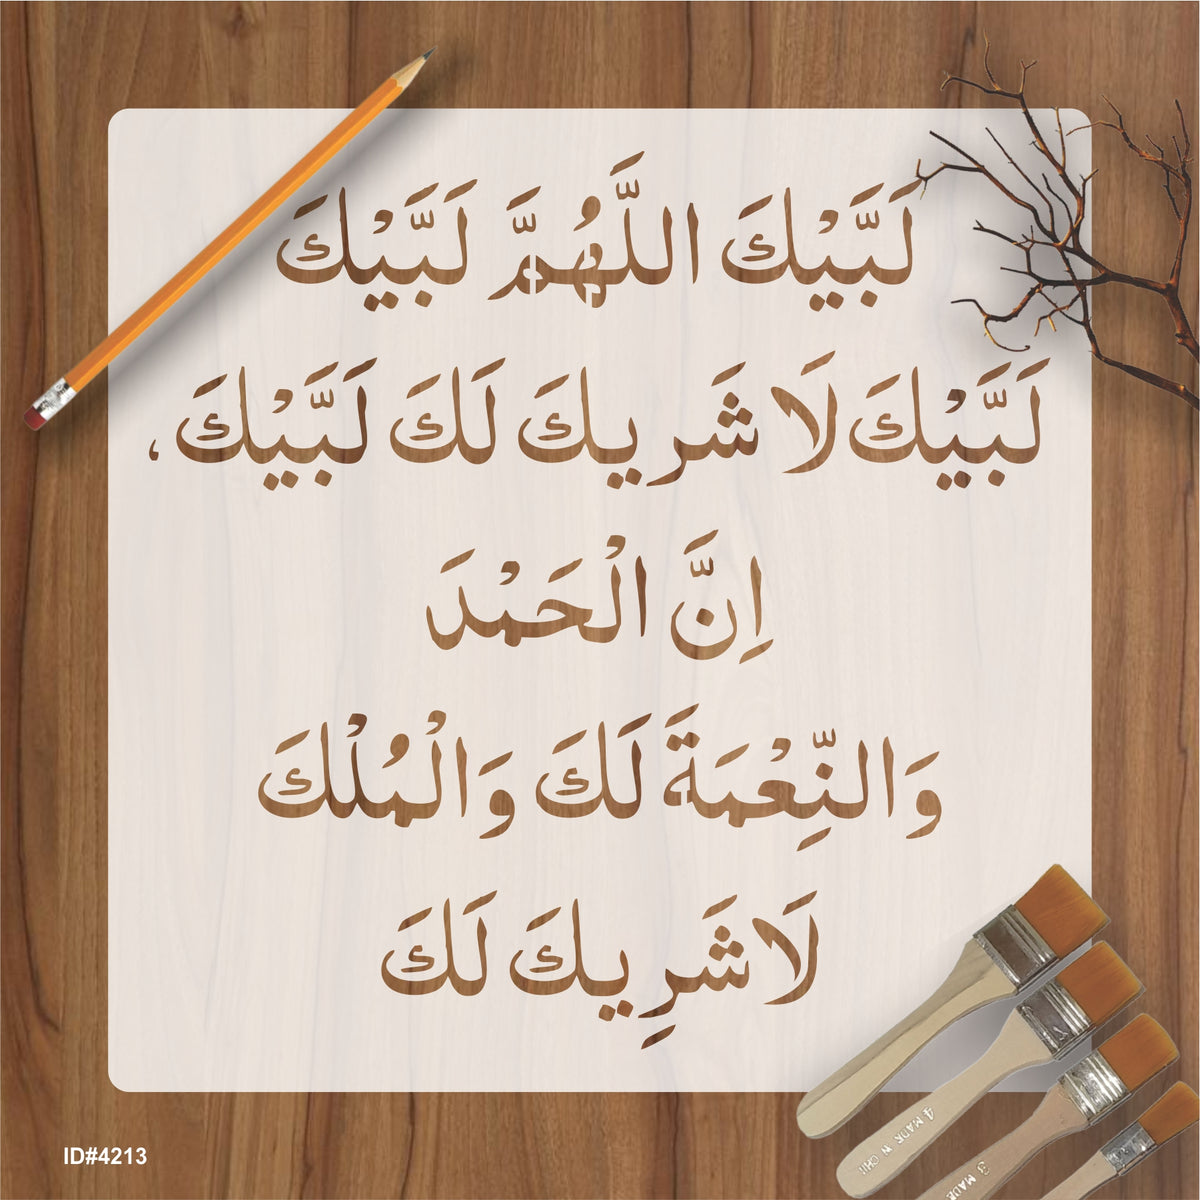 لَبَّيْكَ اللَّهُمَّ لَبَّيْكَ
لَبَّيْكَ لَا شَريكَ لَكَ لَبَّيْكَ ،
اِنَّ الْحَمْدَ
وَالنِّعْمَةَ لَكَ وَالْمُلْكَ
لَا شَرِيكَ لَكَ
4 MADE IN CHI
3 MADE
ID#4213